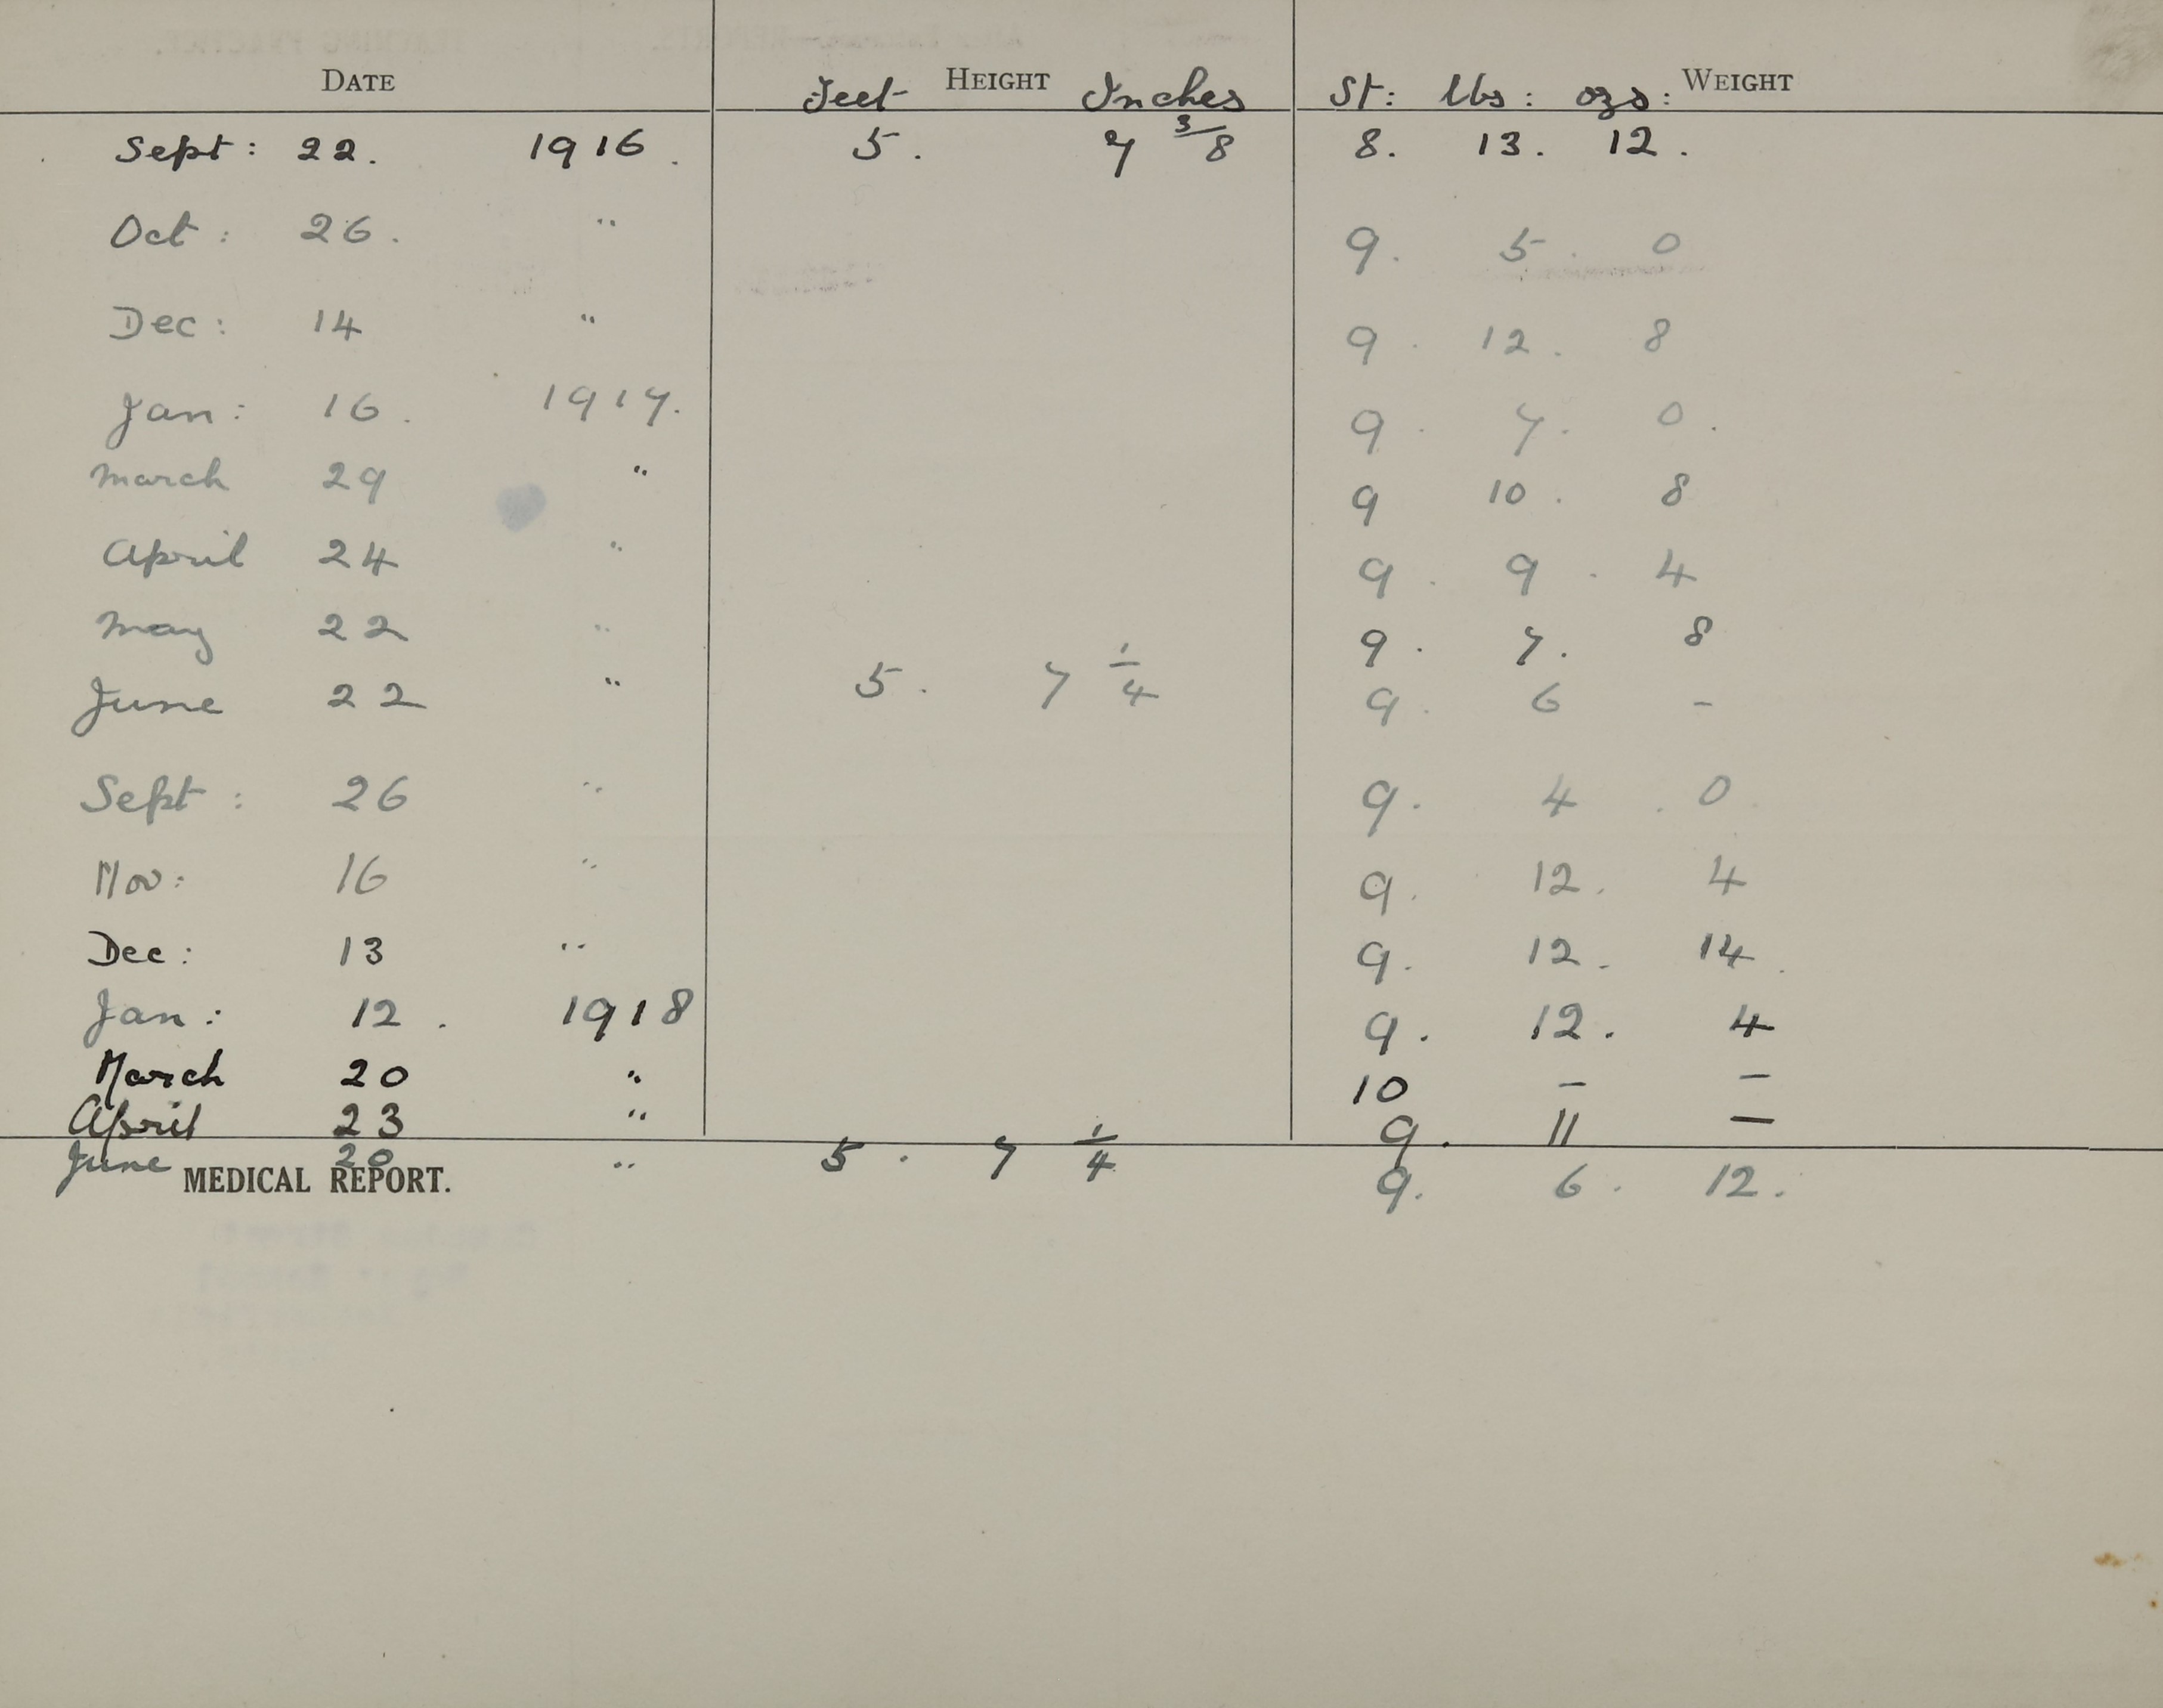 DATE Feet HEIGHT Inches St: lbs: ozs: WEIGHT
Sept: 22. 1916. 5. 7 3/8 8. 13. 12.
Oct: 26. " 9. 5. 0
Dec: 14 " 9. 12. 8
Jan: 16. 1917. 9. 7. 0.
March 29 " 9 10. 8
April 24 " 9. 9. 4
May 22 " 9. 7. 8
June 22 " 5. 7 1/4 9. 6 -
Sept: 26 " 9. 4. 0
Nov: 16 " 9. 12. 4
Dec: 13 " 9. 12. 14.
Jan: 12. 1918 9. 12. 4
March 20 " 10 - -
April 23 " 9. 11 -
June 20 " 5. 7 1/4 9. 6. 12.
MEDICAL REPORT.